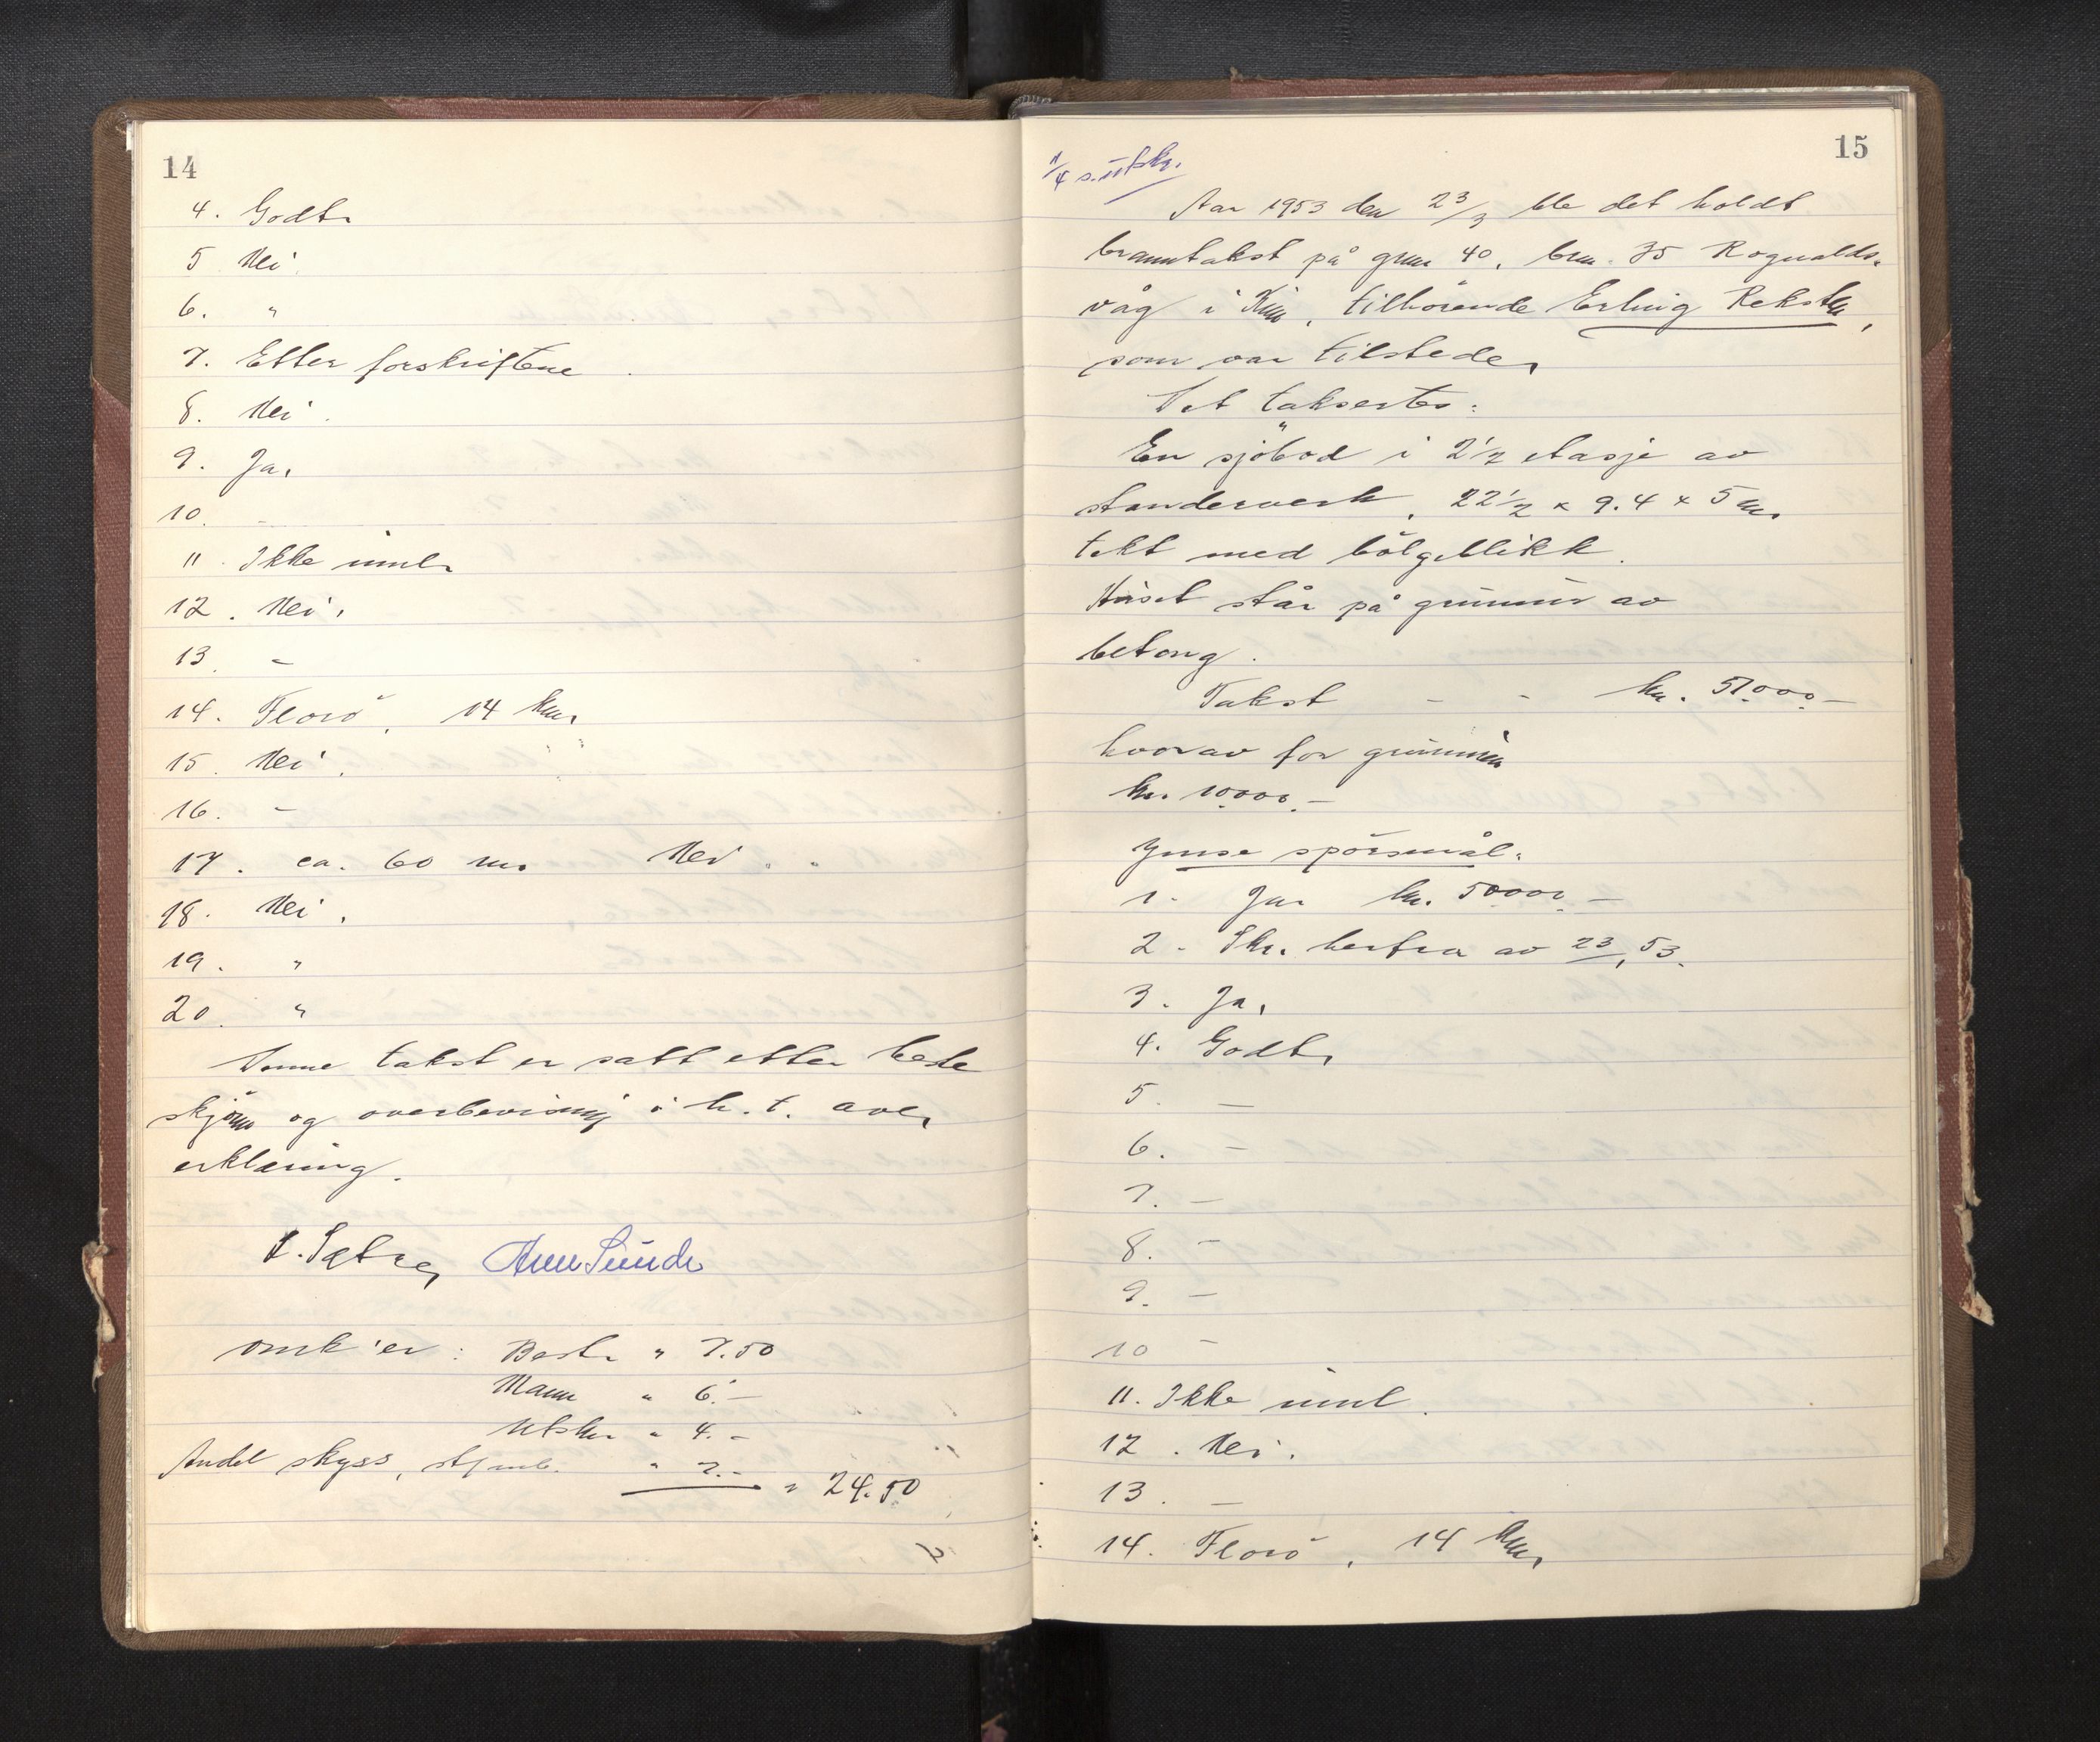 14
4. Godt.
5 Nei
6. "
7. Etter forskriftene.
8. Nei.
9. Ja.
10. -
11. Ikke innl.
12. Nei.
13. -
14. Florö, 14 km.
15. Nei.
16. -
17. ca. 60 m. Nei.
18. Nei.
19. "
20. "
Denne takst er satt etter beste
skjönn og overbevisning i h. t. avl.
erklæring.
Omk'er: Best. " 7.50
Mann " 6.-
Utskr " 4.-
Andel skyss, " 7.- = 24.50
15
1/4 s. utskr.
Aar 1953 den 23/3 ble det holdt
branntakst på gnr 40, bnr. 35 Rognalds-
våg i Kinn, tilhörende Erling Reksten,
som var tilstede.
Det taksertes:
En sjöbod i 2 1/2 etasje av
standerverk, 22 1/2 x 9.4 x 5 m.
tekt med bölgeblikk.
Huset står på grunnmur av
betong.
Takst - - kr. 51000.-
hvorav for grunnmuren
kr. 10000.-
Ymse spörsmål.
1. Ja. kr. 50000.-
2. Skr. herfra av 23/1 53.
3. Ja.
4. Godt.
5. -
6. -
7. -
8. -
9. -
10 -
11. Ikke innl.
12. Nei.
13. -
14. Florö, 14 km.